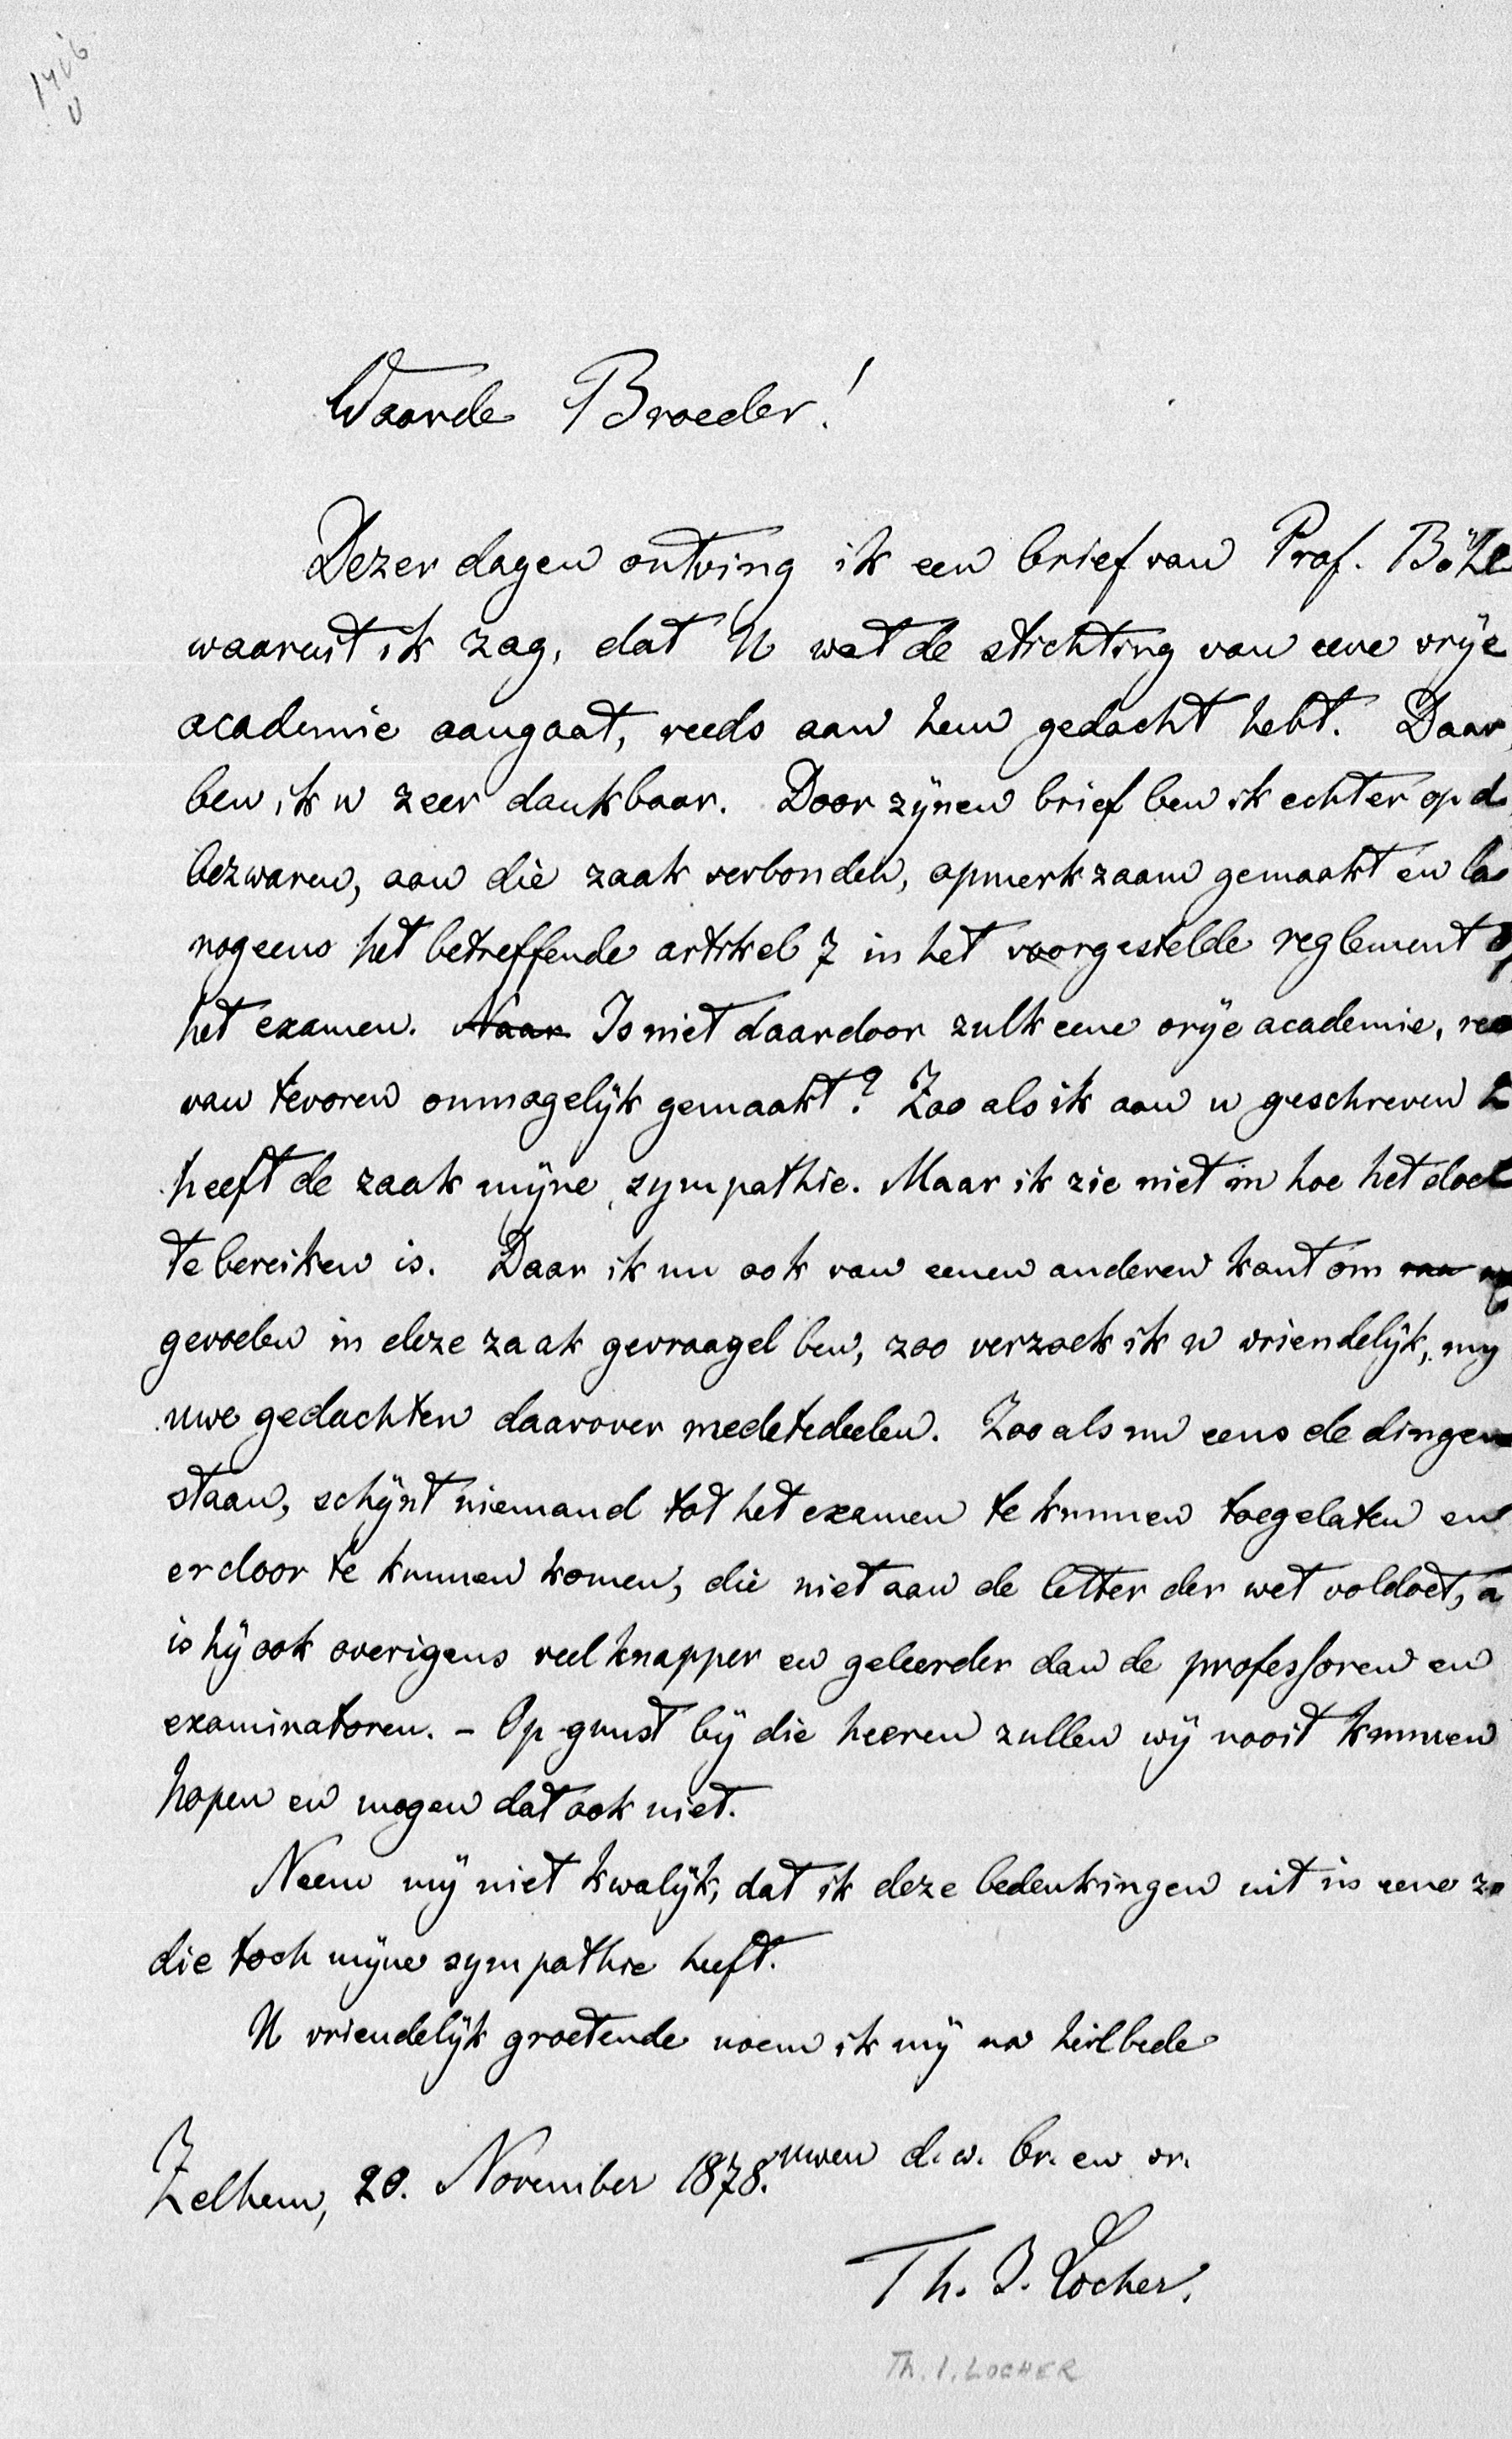 1426
Waarde Broeder!
Dezer dagen ontving ik een brief van Prof. Böhl
waaruit ik zag, dat U wat de stichting van eene vrije
academie aangaat, reeds aan hem gedacht hebt. Daar
ben ik u zeer dankbaar. Door zijnen brief ben ik echter op d
bezwaren, aan die zaak verbonden, opmerkzaam gemaakt en la
nogeens het betreffende artikel 7 in het voorgestelde reglement o
het examen. Naar Is niet daardoor zulk eene vrije academie, ree
van tevoren onmogelijk gemaakt? Zoo als ik aan u geschreven h
heeft de zaak mijne sympathie. Maar ik zie niet in hoe het doel
te bereiken is. Daar ik nu ook van eenen anderen kant om
gevoelen in deze zaak gevraagd ben, zoo verzoek ik u vriendelijk, my
uwe gedachten daarover medetedeelen. Zooals nu eens de dingen
staan, schijnt niemand tot het examen te kunnen toegelaten en
er door te kunnen komen, die niet aan de letter der wet voldoet, a
is hij ook overigens veel knapper en geleerder dan de professoren en
examinatoren. - Op gunst bij die heeren zullen wij nooit kunnen
hopen en mogen dat ook niet.
Neem mij niet kwalijk, dat ik deze bedenkingen uit in eene za
die toch mijne sympathie heeft.
U vriendelijk groetende noem ik mij na heilbede
uwen d.w. br. en vr.
Zelhem, 20. November 1878.
Th. J. Locher.
Th. I. LOCHER